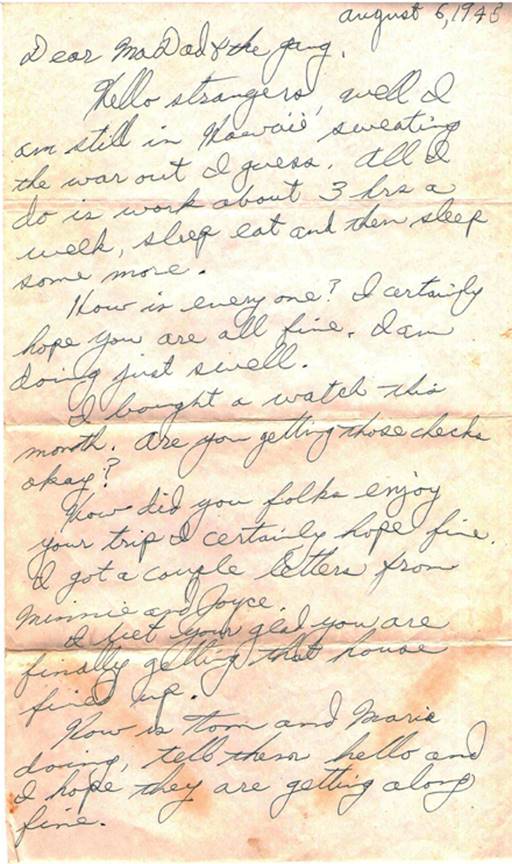 august 6, 1945
Dear Ma Dad & the gang,
Hello strangers, well I
am still in Hawaii sweating
the war out I guess. All I
do is work about 3 hrs a
week, sleep eat and then sleep
some more.
How is every one? I certainly
hope you are all fine. I am
doing just swell.
I bought a watch this
month. Are you getting those checks
okay?
How did you folks enjoy
your trip I certainly hope fine.
I got a couple letters from
Minnie and Joyce.
I bet your glad you are
finally getting that house
fixed up.
How is Tom and Marie
doing, tell them hello and
I hope they are getting along
fine.